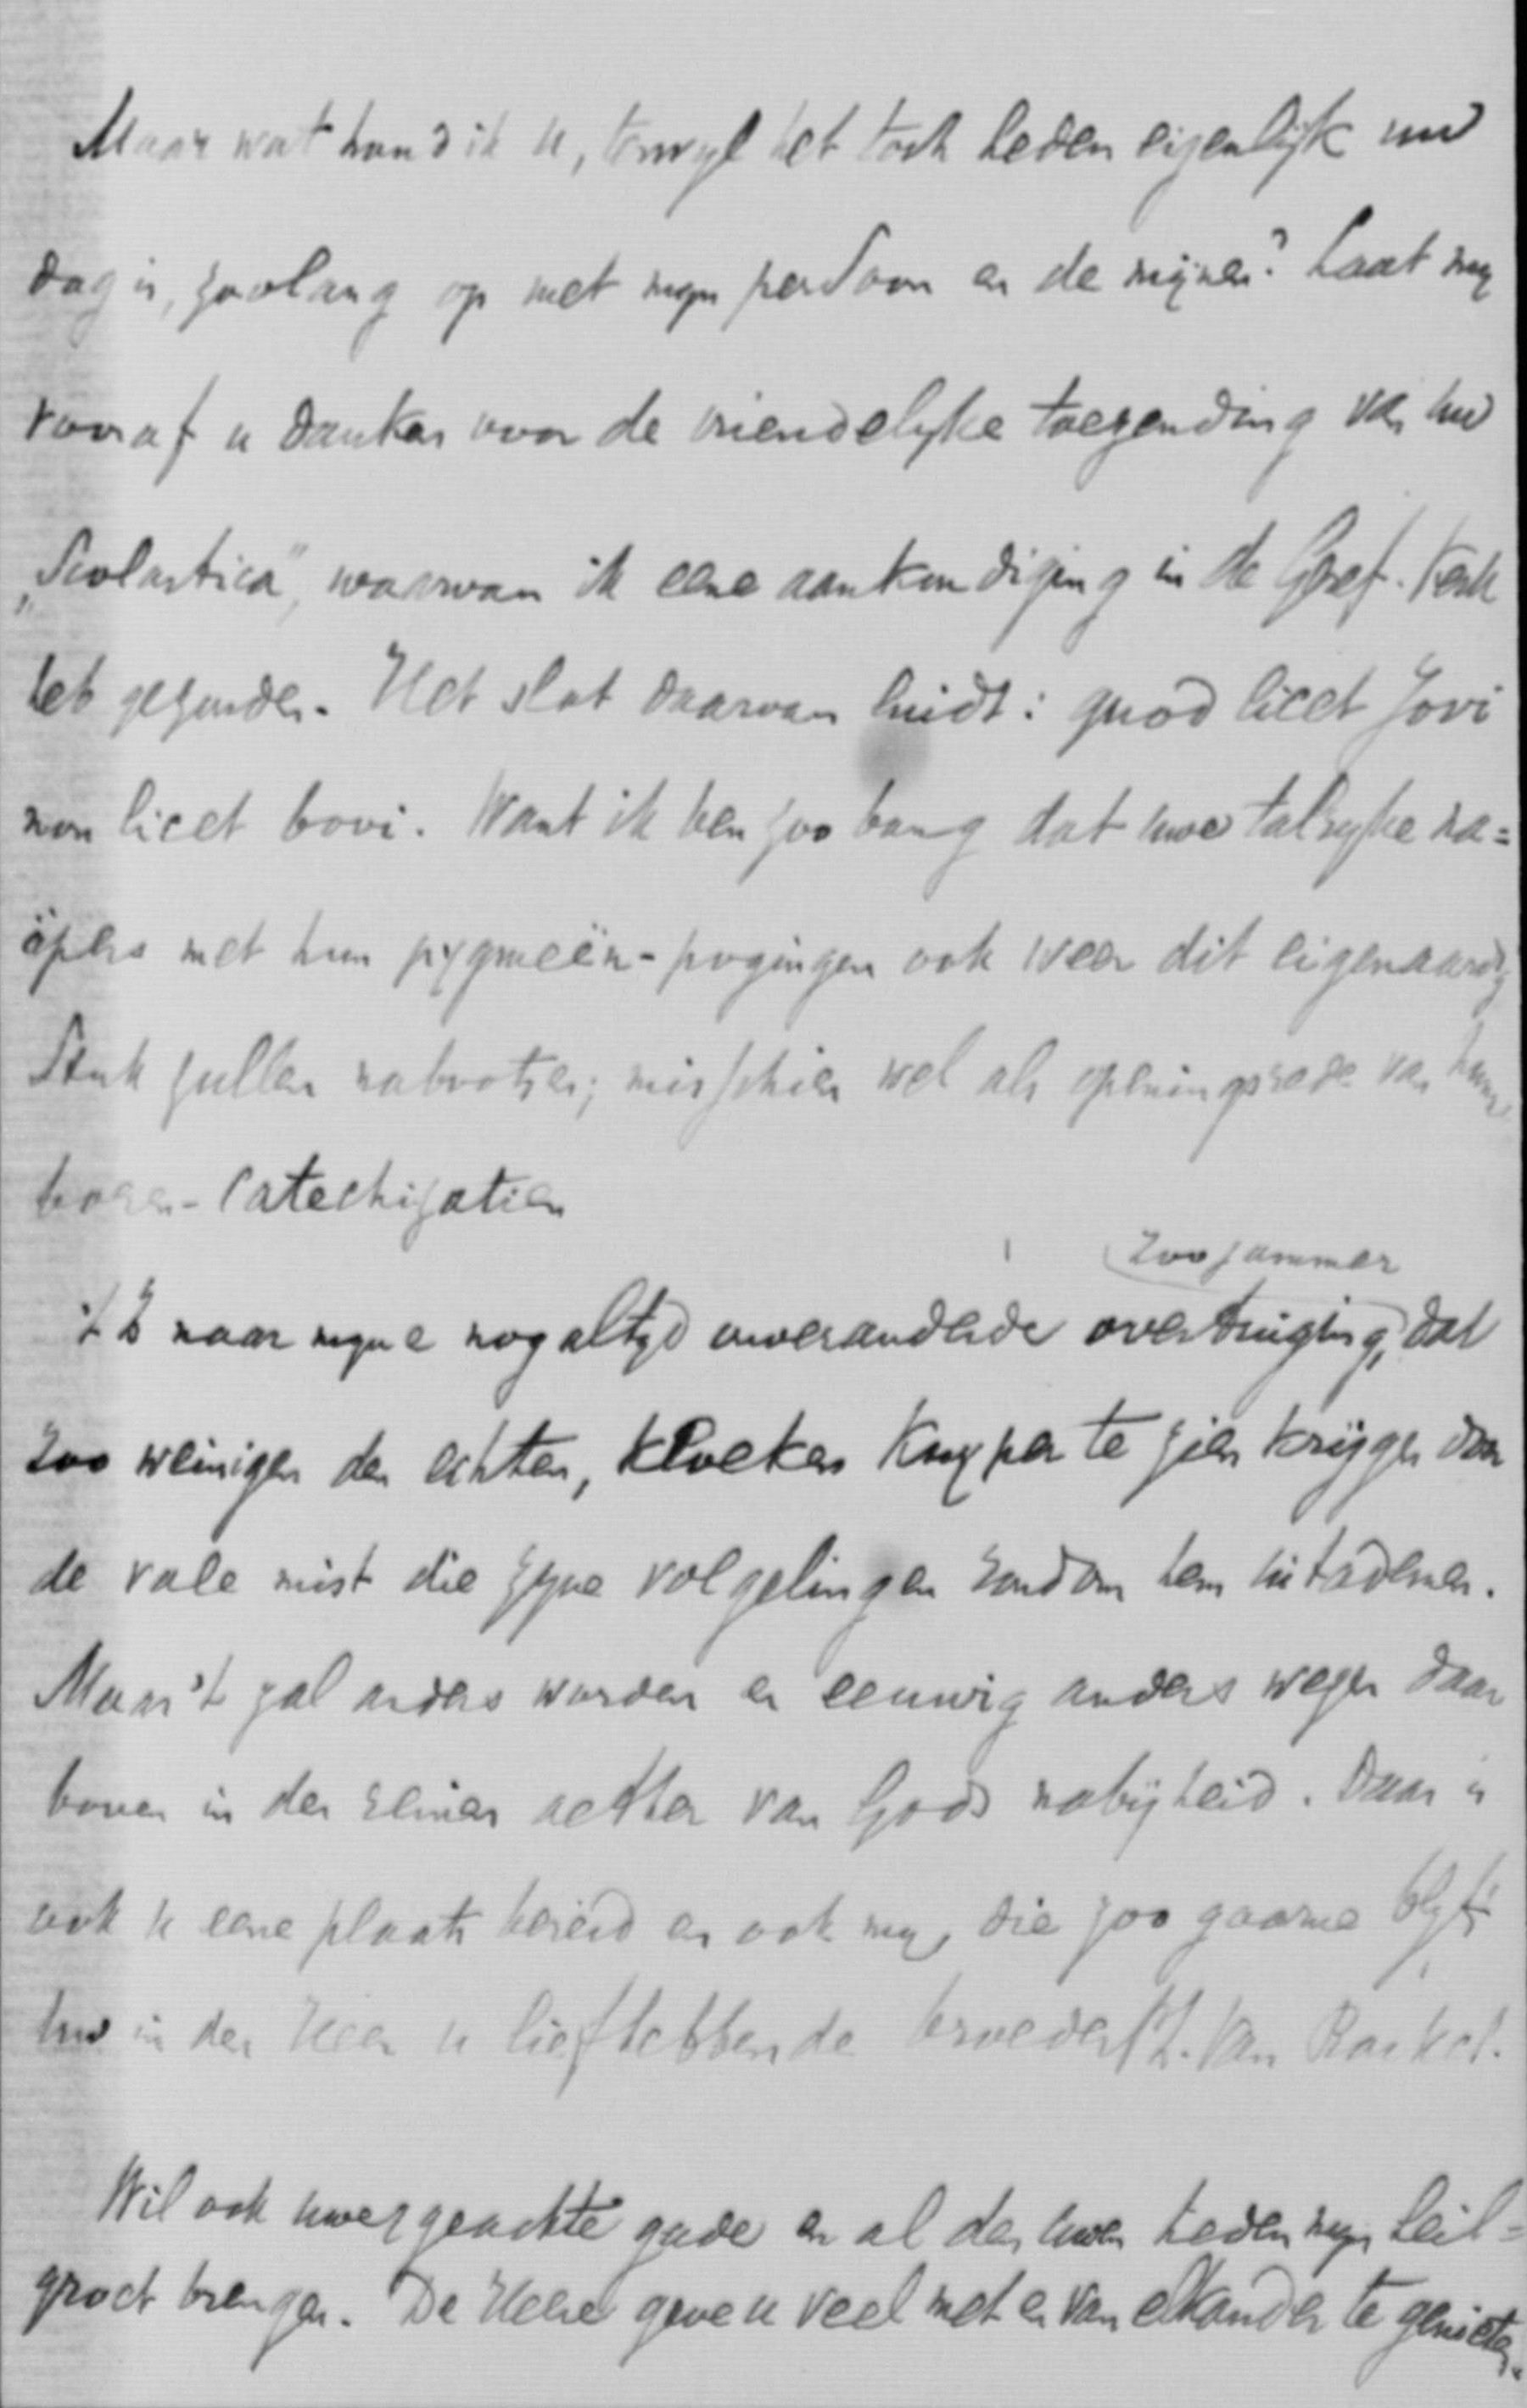 Maar wat houd ik u, terwyl het toch heden eigenlijk uw
dag is, zoolang op met myn persoon en de mijnen? Laat my
vooraf u danken voor de vriendelyke toezending van uw
„Scolastica", waarvan ik eene aankondiging in de Geref. Kerk
heb gezonden. Het slot daarvan luidt: quod licet Jovi
non licet bovi. Want ik ben zoo bang dat uwe talryke na=
äpers met hun pygmeën-pogingen ook weer dit eigenaardig
stuk zullen nabootsen; misschien wel als openingsrede van hunne
boeren-Catechizatien
zoo jammer
't Is naar myne nog altyd onveranderde overtuiging, dat
zoo weinigen den echten, kloeken Kuyper te zien krijgen door
de vale mist die zyne volgelingen rondom hem uitademen.
Maar 't zal anders worden en eeuwig anders wezen daar
boven in den reinen aether van Gods nabijheid. Daar is
ook u eene plaats bereid en ook my, die zoo gaarne blyft
uw in den Heer u liefhebbende broeder van
Wil ook uwe geachte gade en al den uwen heden myn heil=
groet brengen. De Heere geve u veel met en van elkander te genieten.